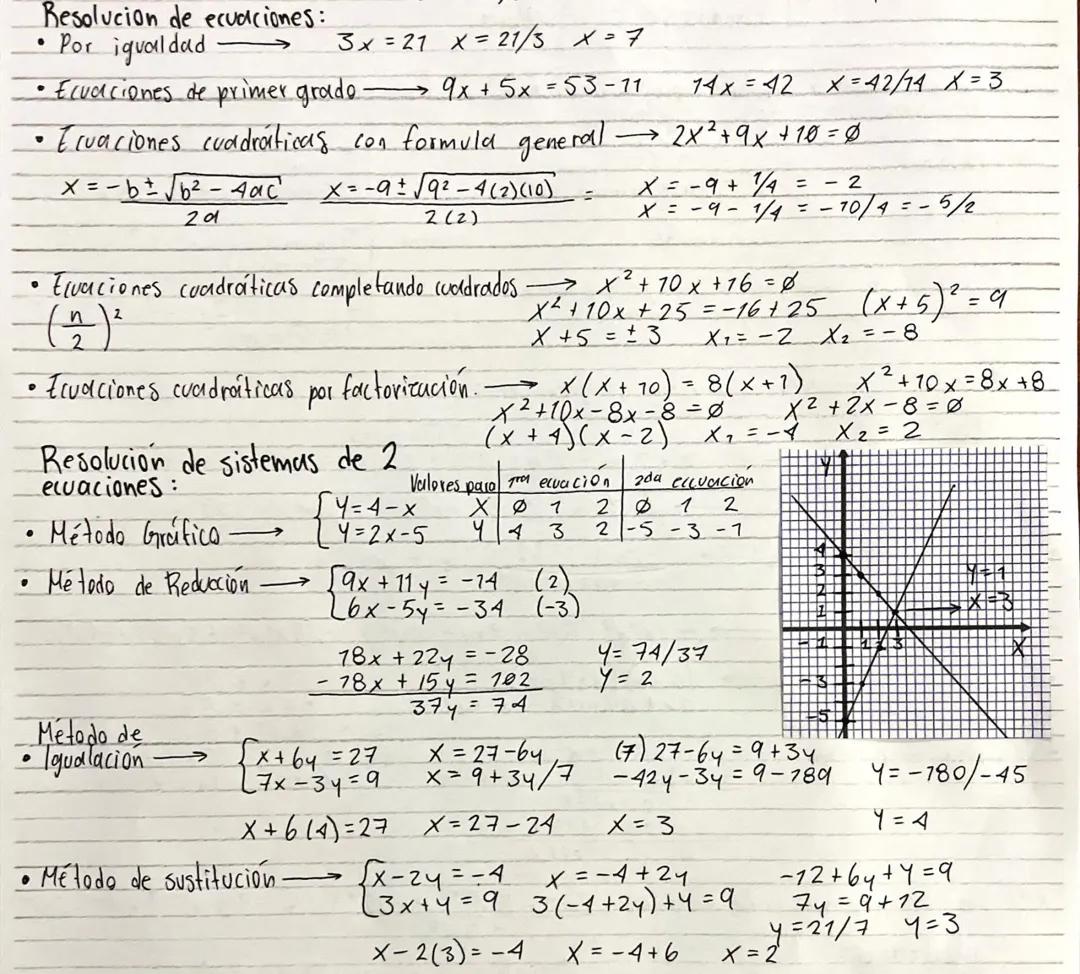 Resolucion de ecuaciones:
• Por igualdad → 3x = 21 x = 21/3 x = 7
• Ecuaciones de primer grado → 9x + 5x = 53 - 11 14x = 42 x = 42/14 x = 3
• Ecuaciones cuadráticas con formula general → 2x² + 9x + 10 = ∅
x = -b ± √b² - 4ac / 2a x = -9 ± √9² - 4(2)(10) / 2(2) = x = -9 + 1/4 = - 2
x = -9 - 1/4 = -10/4 = - 5/2
• Ecuaciones cuadráticas completando cuadrados → x² + 10x + 16 = ∅
(n/2)² x² + 10x + 25 = -16 + 25 (x + 5)² = 9
x + 5 = ± 3 x₁ = -2 x₂ = -8
• Ecuaciones cuadráticas por factorización. → x(x + 10) = 8(x + 1) x² + 10x = 8x + 8
x² + 10x - 8x - 8 = ∅ x² + 2x - 8 = ∅
(x + 4)(x - 2) x₁ = -4 x₂ = 2
Resolución de sistemas de 2
ecuaciones:
Valores para 1ra ecuación 2da ecuación
{ y = 4 - x x ∅ 1 2 ∅ 1 2
• Método Gráfico → y = 2x - 5 y 4 3 2 -5 -3 -1
y
4
3
2
1
-1
-3
-5
1 2 3
x
y = 1
x = 3
• Método de Reducción → { 9x + 11y = -14 (2)
6x - 5y = -34 (-3)
18x + 22y = -28 y = 74/37
- 18x + 15y = 102 y = 2
37y = 74
Método de
• Igualación → { x + 6y = 27 x = 27 - 6y (7) 27 - 6y = 9 + 3y
7x - 3y = 9 x = 9 + 3y/7 -42y - 3y = 9 - 189 y = -180/-45
x + 6(4) = 27 x = 27 - 24 x = 3 y = 4
• Método de sustitución → { x - 2y = -4 x = -4 + 2y -12 + 6y + y = 9
3x + y = 9 3(-4 + 2y) + y = 9 7y = 9 + 12
y = 21/7 y = 3
x - 2(3) = -4 x = -4 + 6 x = 2